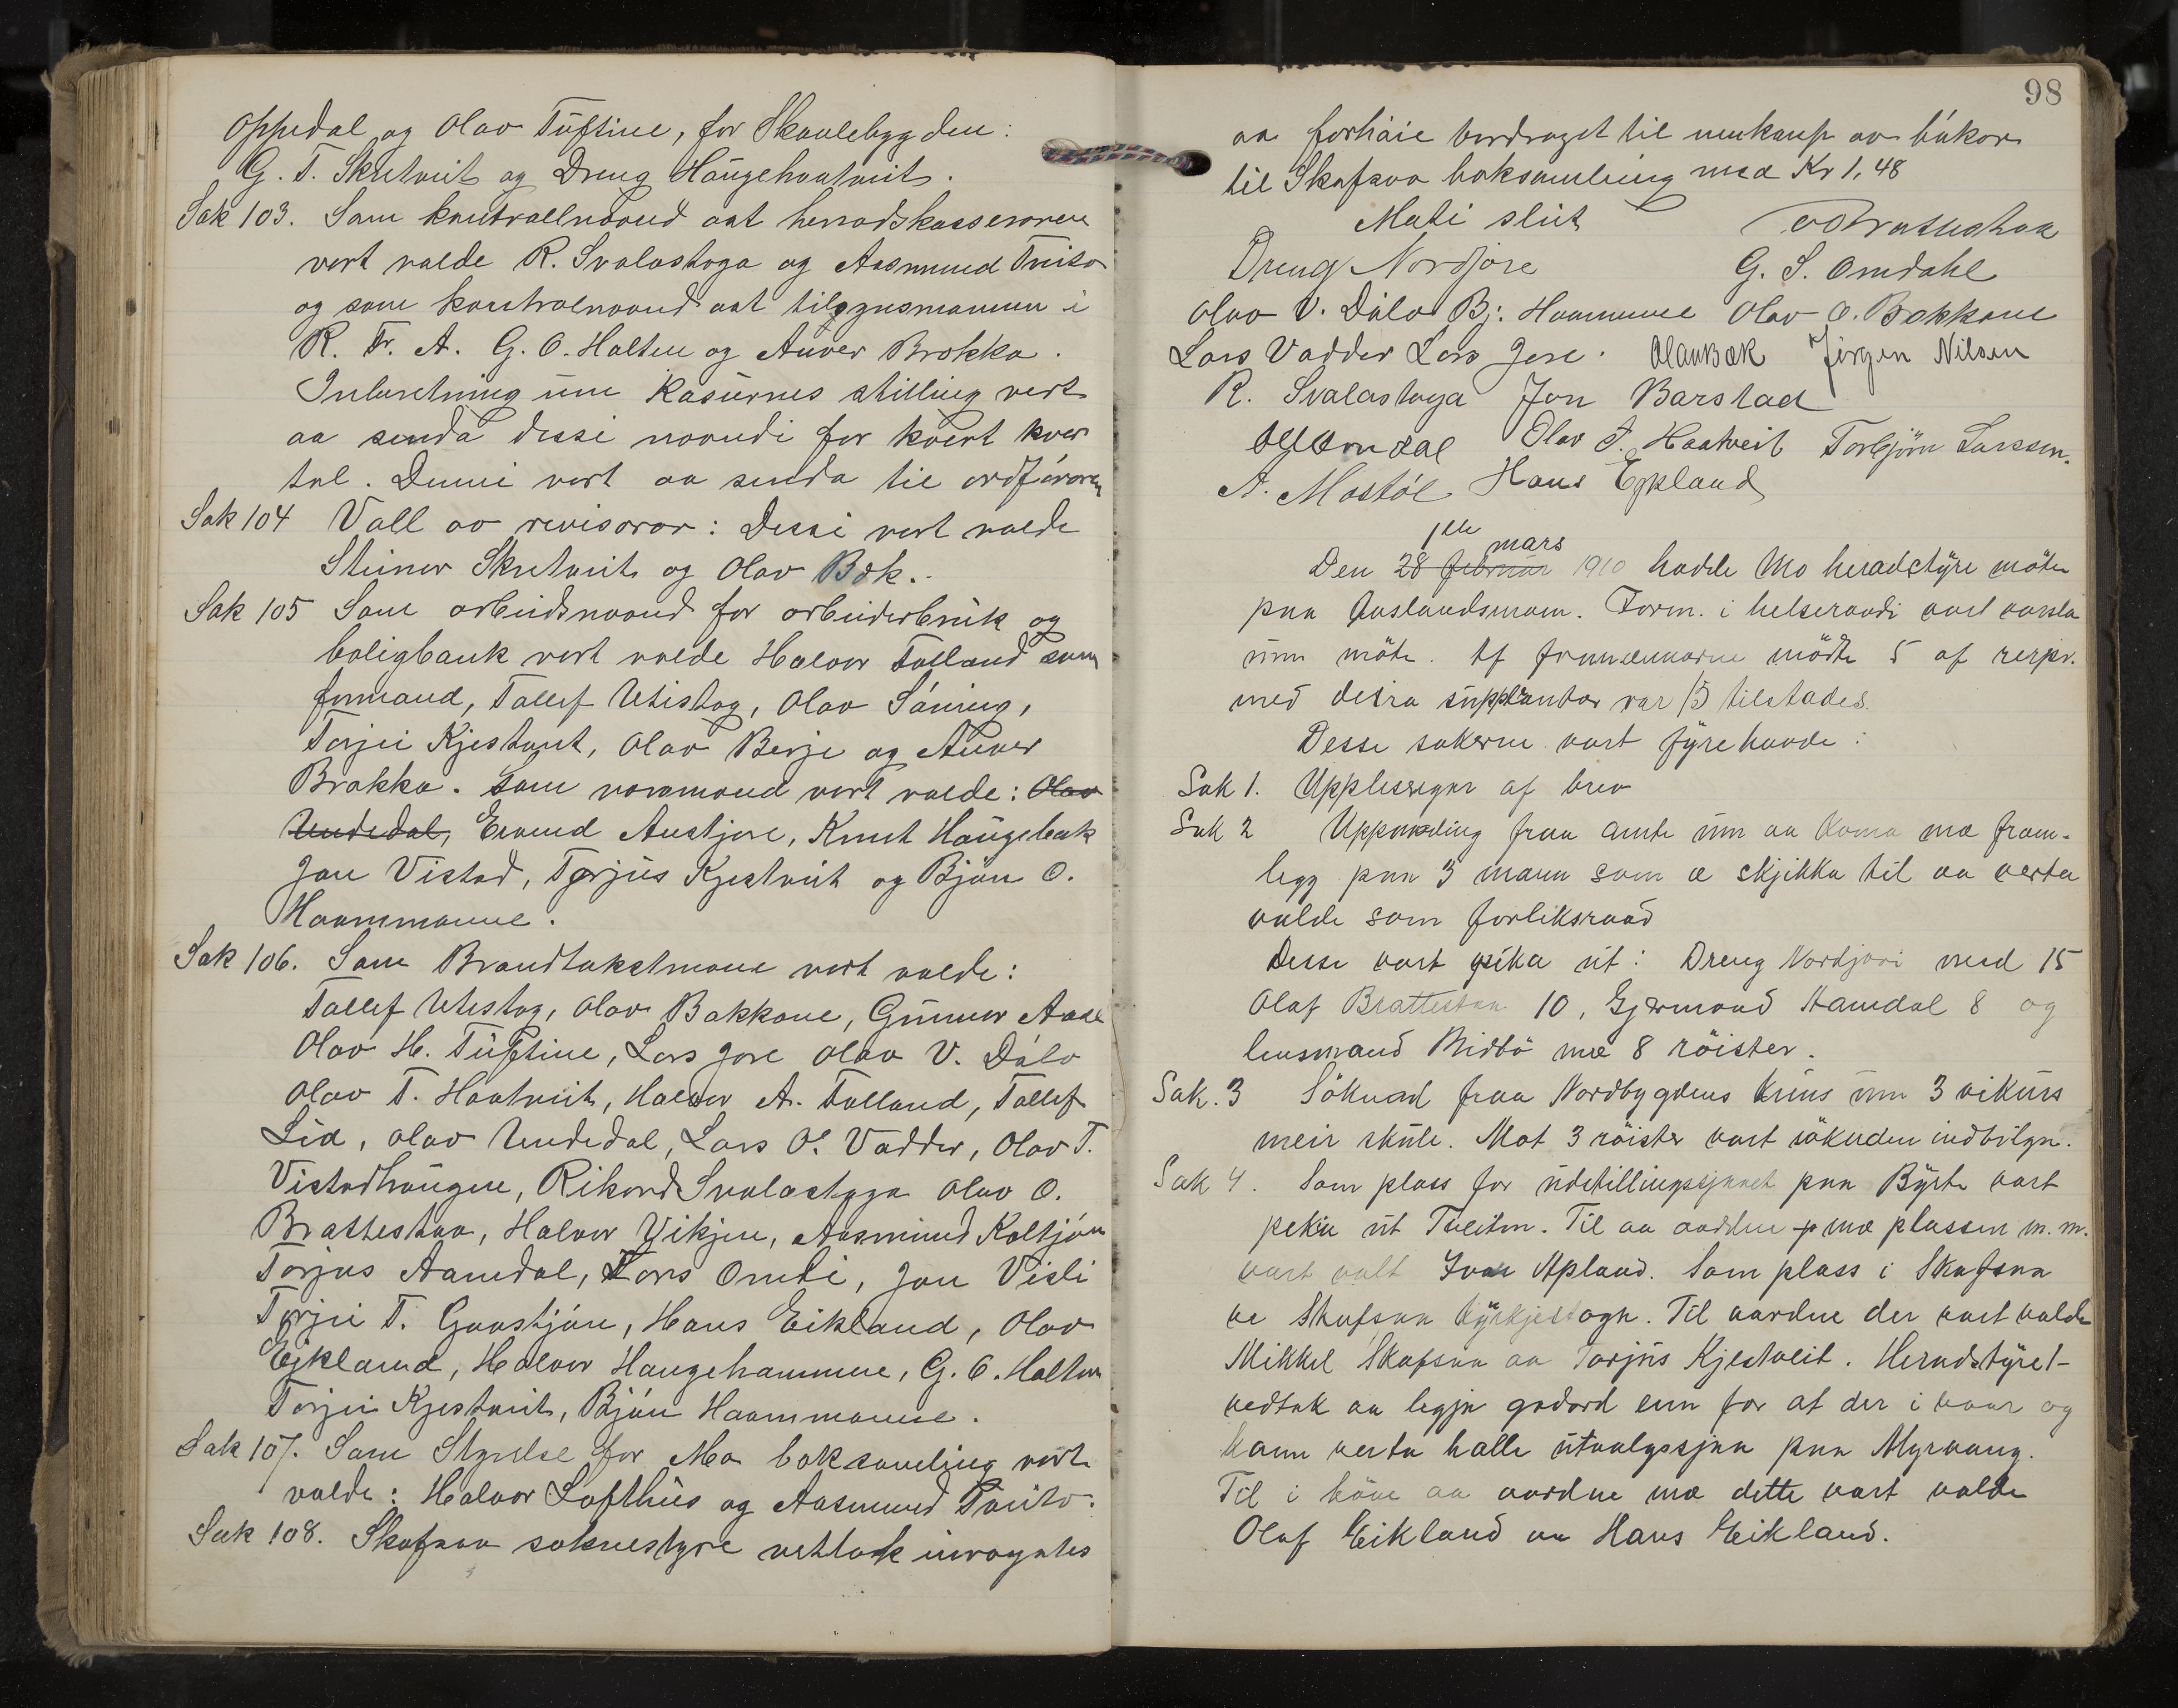 Oppedal og Olav Tuftine, for Skaulebygden:
G. T. Skutveit og Dreng Haugehaatveit.
Sak 103. Som kontrollnævnd aat heradskasseraren
vert valde R. Svalastoga og Aasmund Tveito
og som kontrolnævnd aat tilsynsmannen i
R. Fr. A. G. O. Holten og Anver Brokka.
Inberetning um kassurnes stilling vert
aa senda dessi nævndi for kvert kvar
tal. Denni vert aa senda til ordføraren
Sak 104 Vall av revisorar: Dessi vert valde
Steinar Skutveit og Olav Bæk.
Sak 105 Som arbeidsnævnd for arbeiderbruk og
boligbank vert valde Halvor Folland som
formand, Tallef Utistog, Olav Sáning,
Torjei Kjestveit, Olav Berje og Anver
Brokka. Som varamænd vert valde: Olav
Undedal, Eivind Austjore, Knut Haugebak
Jon Vistad, Torjus Kjestveit og Bjón O.
Haammanne.
Sak 106. Som Brandtakstmenn vert valde:
Tallef Utistog, Olav Bakkane, Gunnar Aase
Olav H. Tuftine, Lars Jore Olav V. Dálo
Olav T. Haatveit, Halvor A. Folland, Tallef
Lid, Olav Undedal, Lars O. Vadder, Olav T.
Vistadhaugen, Rikard Svalastoga Olav O.
Brattestaa, Halvor Vikjen, Aasmund Kaltjón
Torjus Aamdal, Lars Omli, Jon Visli
Torjei T. Gaastjón, Hans Eikland, Olav
Eikland, Halvor Haugehammen, G. O. Holten
Torjei Kjestveit, Bjón Haammanne.
Sak 107. Som Styrelse for Mo boksamling vert
valde: Halvor Lofthus og Aasmund Tveito.
Sak 108. Skafsaa soknestyre vettok
98
aa forháie bordraget til innkaup av bákor
til Skafsaa boksamling med Kr 1,48
Möti slut
O Brattestaa
Dreng Nordjore G. S. Omdahl
Olav V. Dálo Bj. Haammanne Olav O. Bakkane
Lars Vadder Lars Jore. Olav Bæk Jörgen Nilsen
R. Svalastoga Jon Barstad
Olav T. Haatveit Torbjörn Larssen.
A. Mostól Hans Eykland
1ste mars
Den 28 februar 1910 hadde Mo heradstyre möte
paa Auslandsmoen. Form. i helseraadi vart varsla
um möte. Af formænnarne mödte 5 af repr.
med deira supplantar var 15 tilstades.
Desse sakerne vart fyrehavde:
Sak 1. Upplesingar af brev
Sak 2 Uppmoding fraa amte um aa koma mæ fram-
legg paa 3 mann som æ skjikka til aa verta
valde som forliksraad
Desse vart peika ut: Dreng Nordjori med 15
Olaf Brattestaa 10, Gjermond Hamdal 8 og
lensmand Midbö mæ 8 röister.
Sak. 3 Söknad fraa Nordbygdens krins um 3 vikurs
meir skule. Mot 3 röister vart söknaden indvilgn.
Sak 4. Som plass for udstillingssjaaet paa Byrte vart
peika ut Tveiten. Til aa aardne mæ plassen m.m.
vart valt Ivar Apland. Som plass i Skafsaa
ve Skafsaa kyrkjestogn. Til aardne der vart valde
Mikkel Skafsaa aa Torjus Kjestveit. Heradstyret-
vedtak aa legja godord inn for at der i vaar og
kann verta halle utvalgssjaa paa Myrvang.
Til i háve aa aardne mæ dette vart valde
Olaf Eikland aa Hans Eikland.